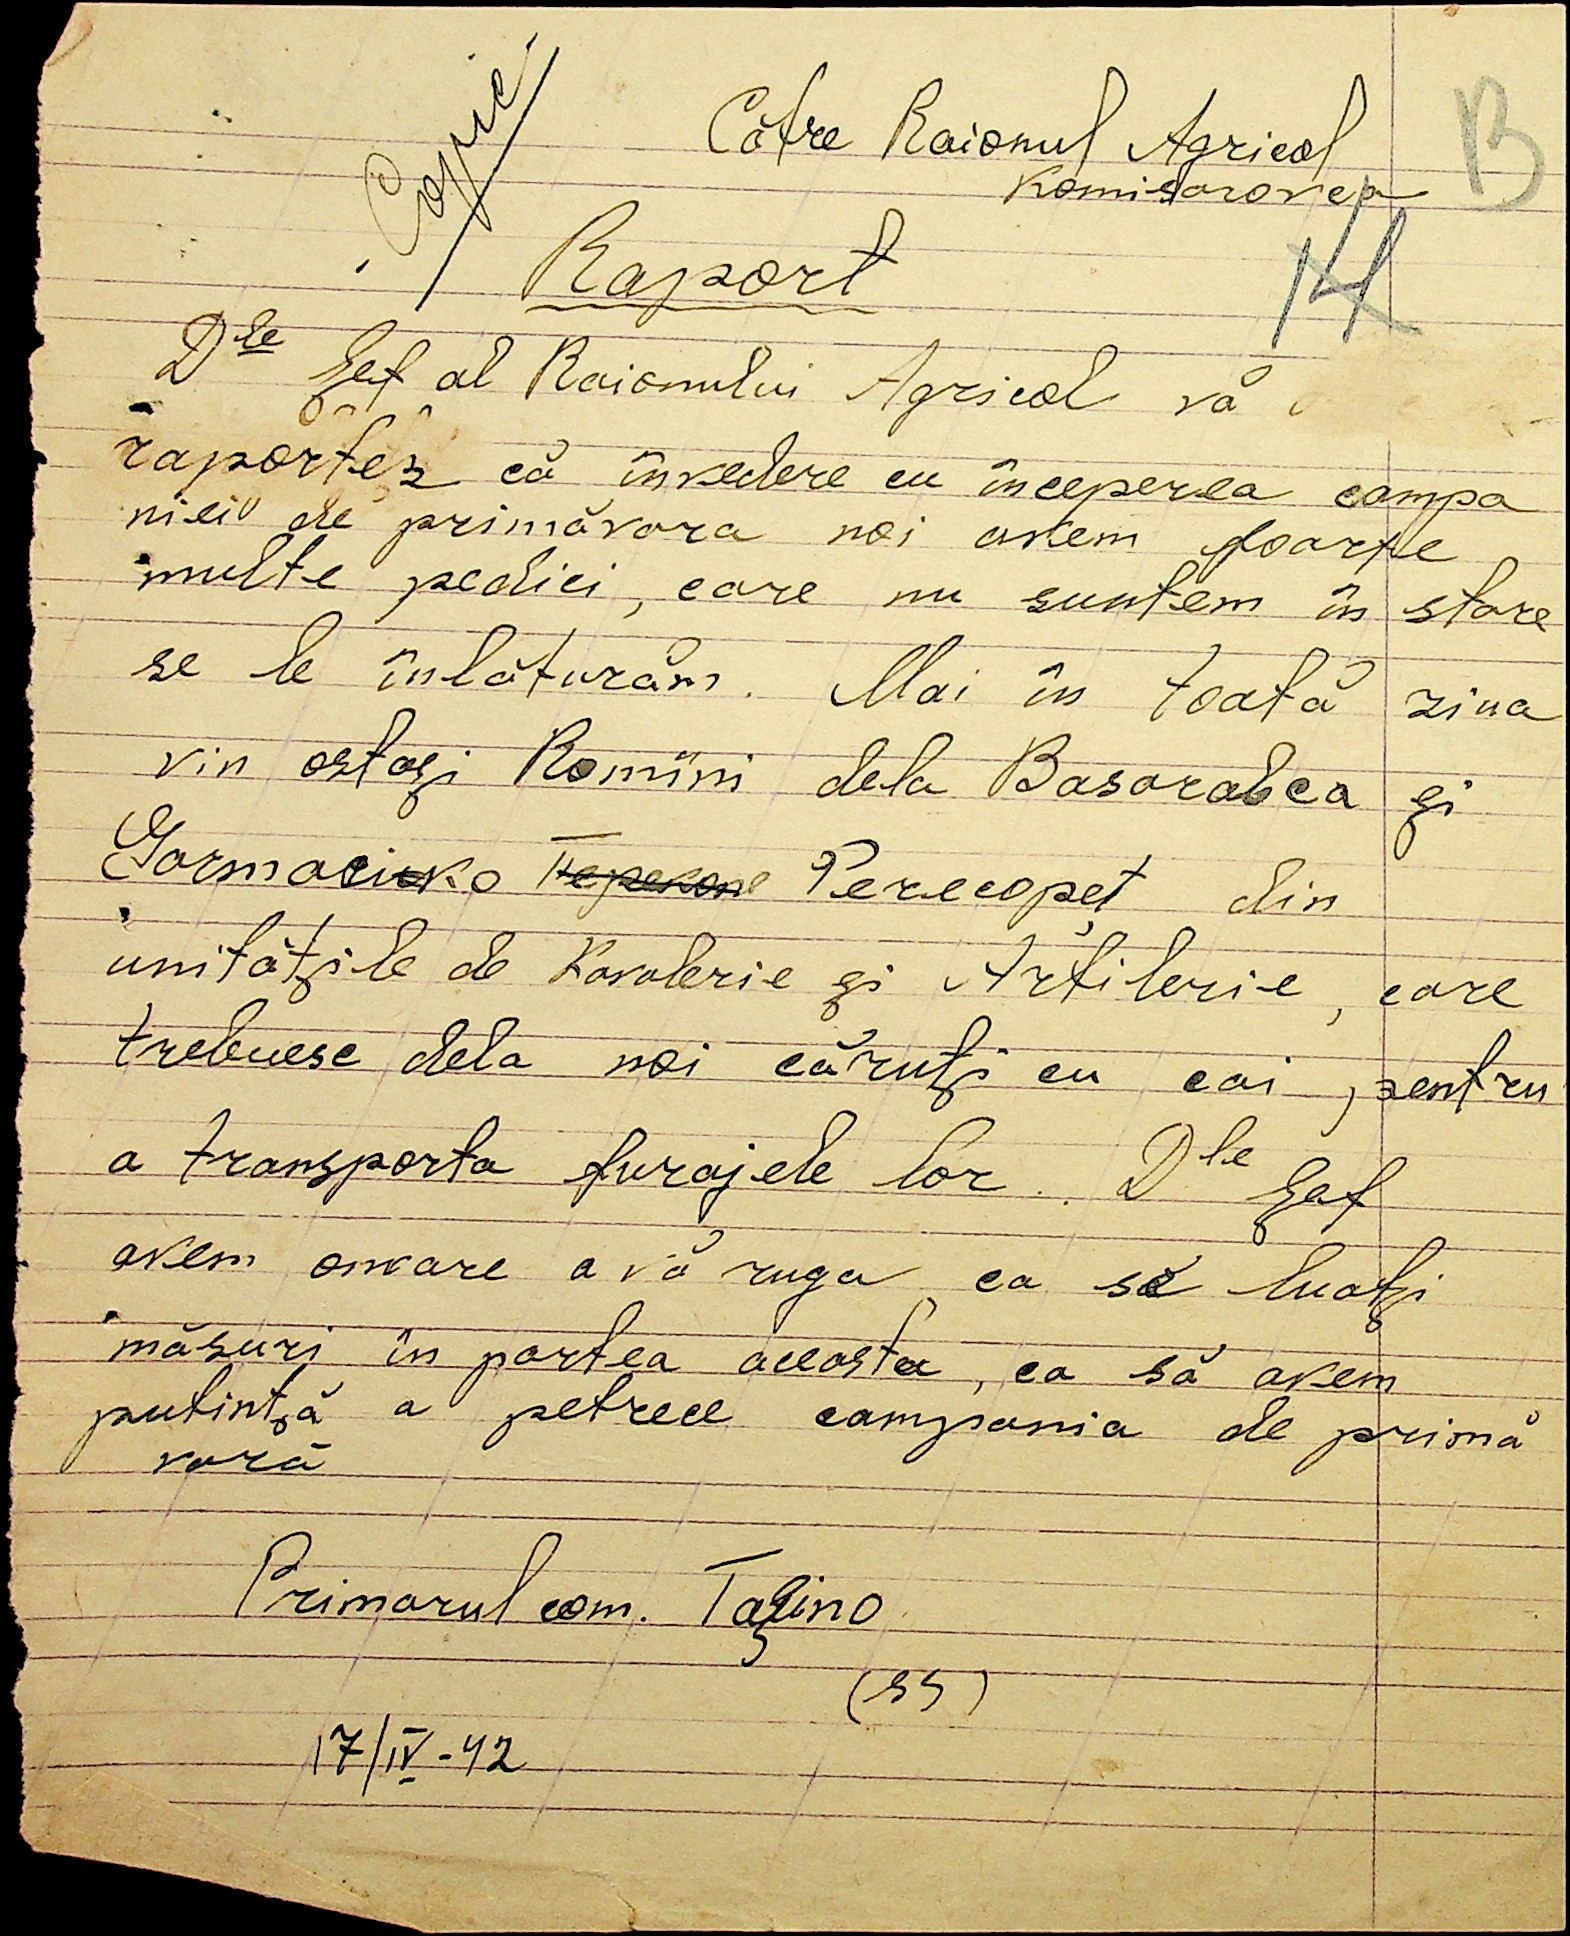 Copie
Către Raionul Agricol
Komisarovca
B
14
Raport
Dle Șef al Raionului Agricol vă
raportez că învedere cu începerea campa
niei de primăvara noi avem foarte
multe pedici, care nu suntem în stare
se le înlăturăm. Mai în toată ziua
vin ostași Romîni dela Basarabca și
Perecopet din
unitățile de Kavalerie și Artilerie, care
trebuesc dela noi căruți cu cai, pentru
a transporta furajele lor. Dle Șef
avem onvare a vă ruga ca să luați
măsuri în partea aceasta, ca să avem
putință a petrece campania de primă
vară
Primarul com. Tașino
(ss)
17/IV-42